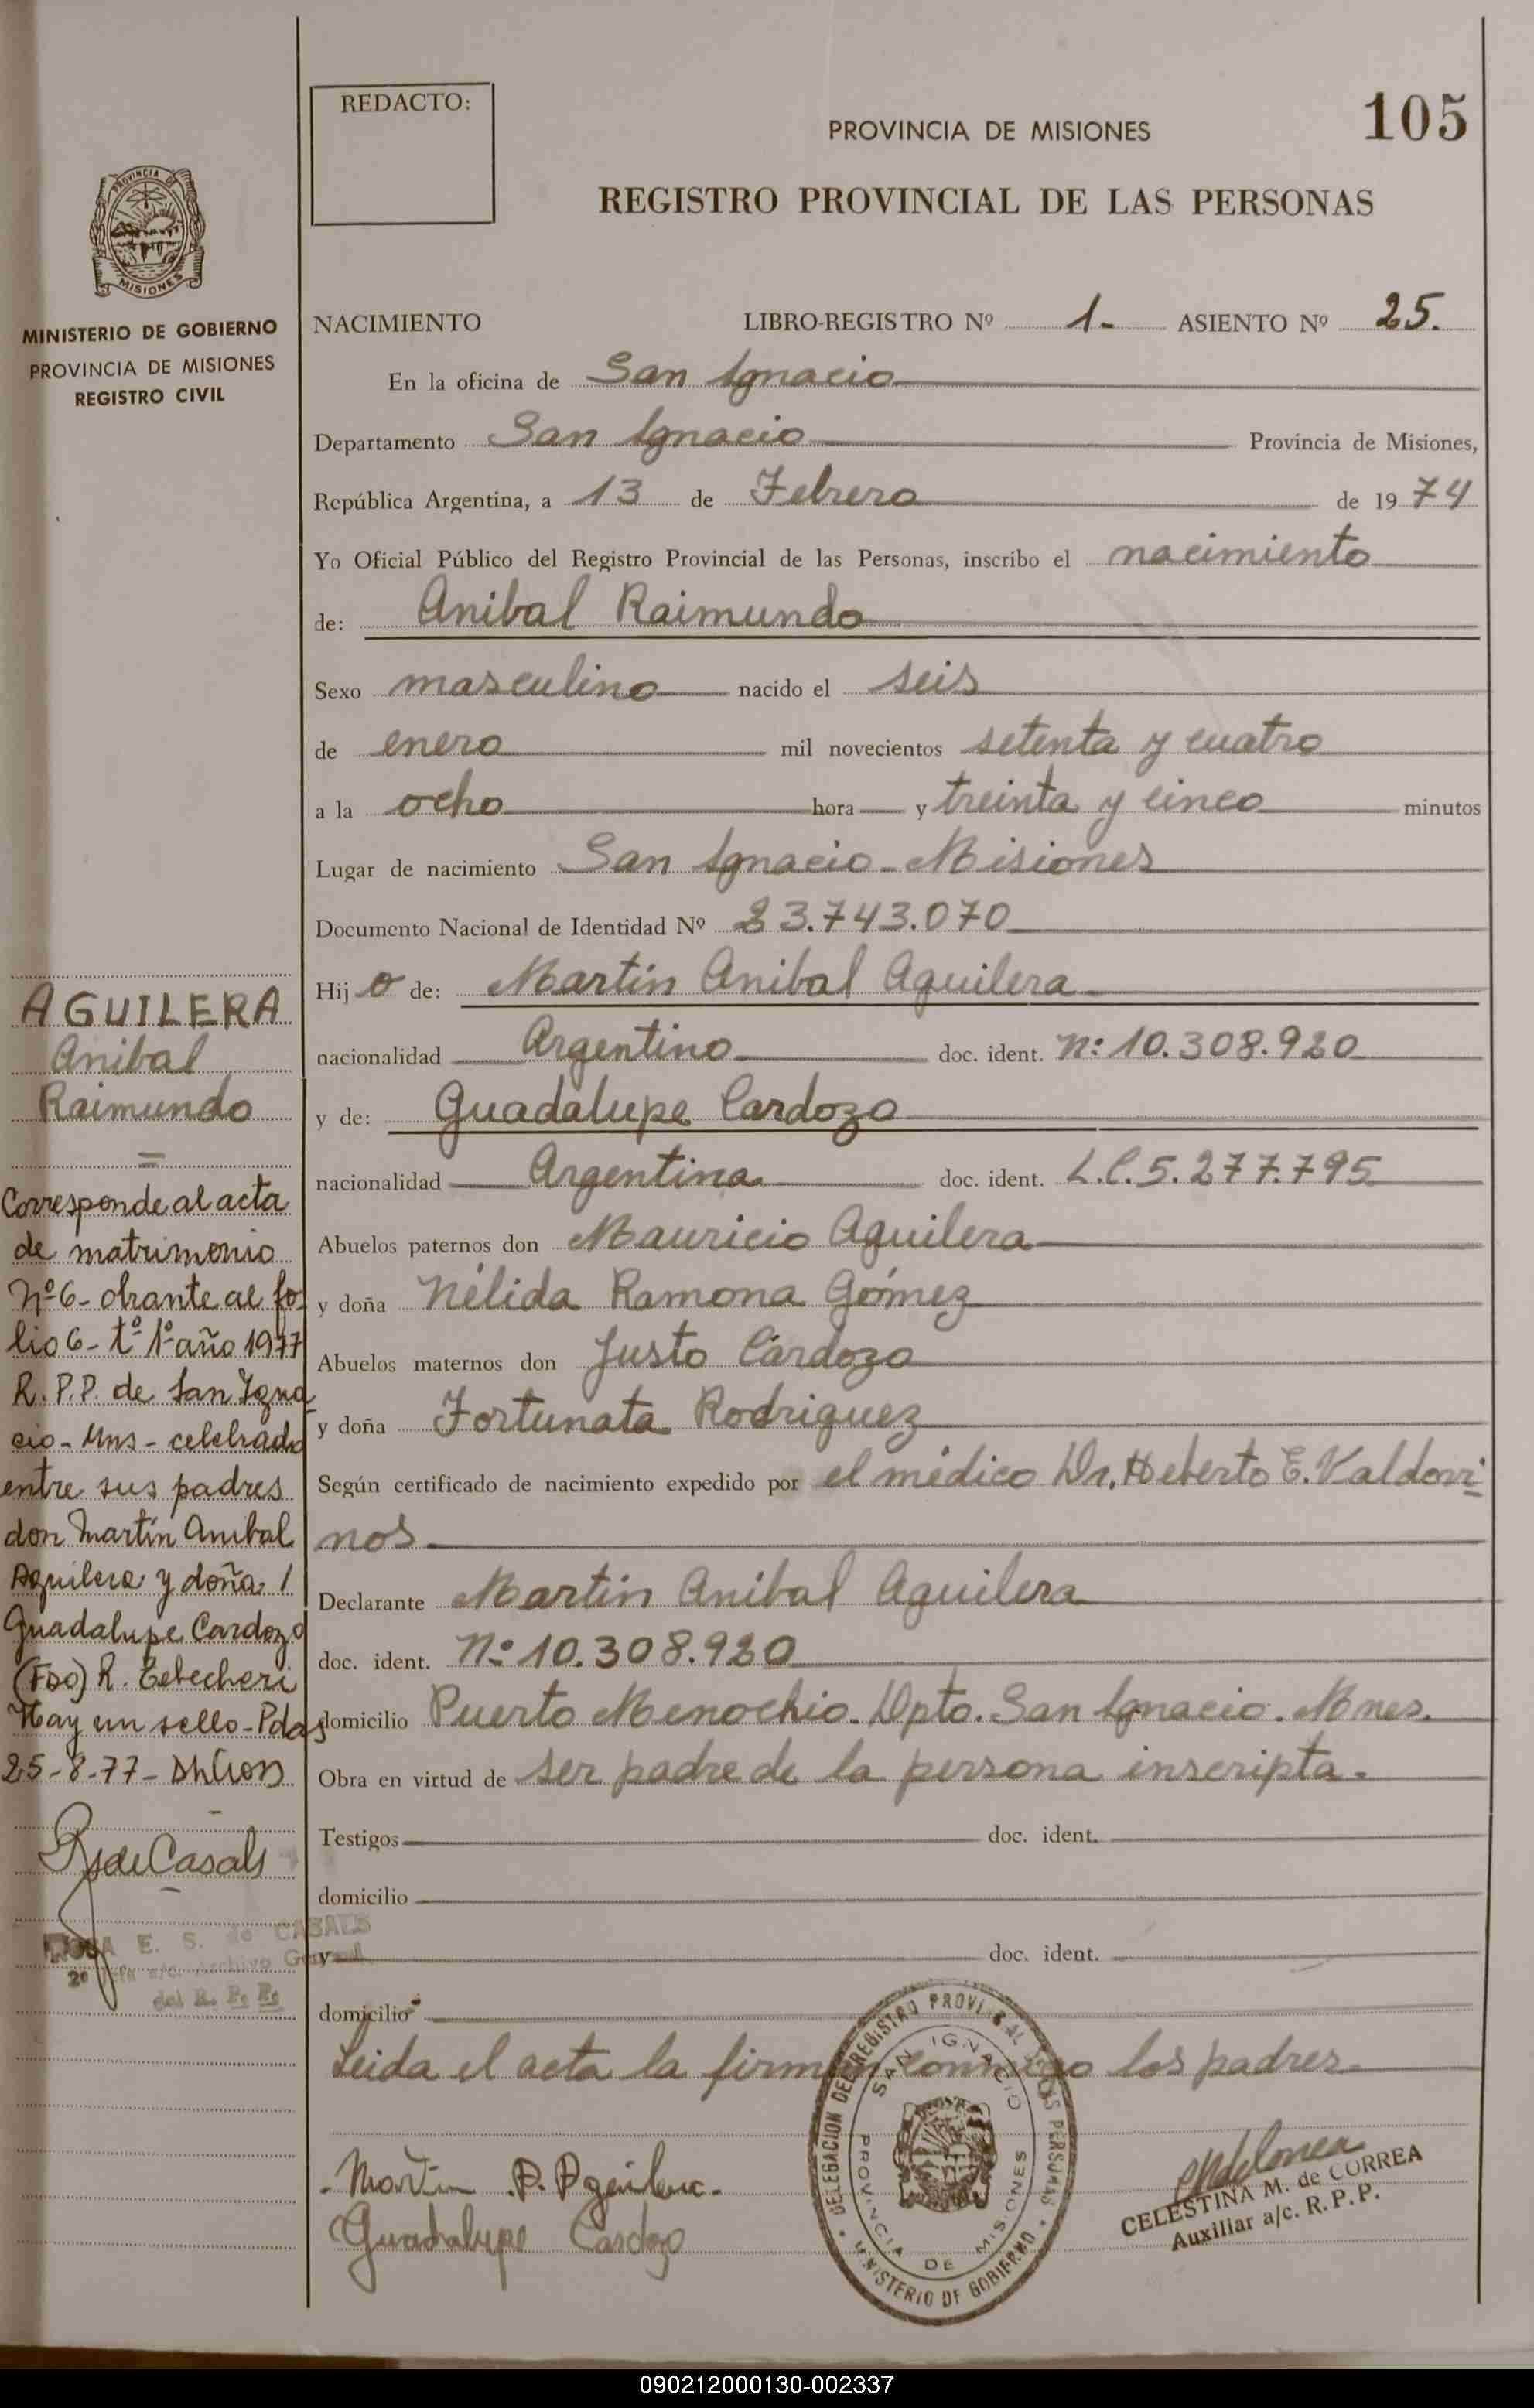 REDACTO:
PROVINCIA DE MISIONES
105
REGISTRO PROVINCIAL DE LAS PERSONAS
PROVINCIA DE
MISIONES
MINISTERIO DE GOBIERNO
PROVINCIA DE MISIONES
REGISTRO CIVIL
NACIMIENTO LIBRO-REGISTRO Nº 1.- ASIENTO Nº 25.
En la oficina de San Ignacio
Departamento San Ignacio Provincia de Misiones,
República Argentina, a 13 de Febrero de 1974
Yo Oficial Público del Registro Provincial de las Personas, inscribo el nacimiento
de: Anibal Raimundo
Sexo masculino nacido el seis
de enero mil novecientos setenta y cuatro
a la ocho hora y treinta y cinco minutos
Lugar de nacimiento San Ignacio - Misiones
Documento Nacional de Identidad Nº 23.743.070
Hijo de: Martín Anibal Aguilera
nacionalidad Argentino doc. ident. Nº: 10.308.920
y de: Guadalupe Cardozo
nacionalidad Argentina doc. ident. L.C. 5.277.795
Abuelos paternos don Mauricio Aguilera
y doña Nélida Ramona Gómez
Abuelos maternos don Justo Cardozo
y doña Fortunata Rodriguez
Según certificado de nacimiento expedido por el médico Dr. Heberto E. Valdovi-
nos
Declarante Martín Anibal Aguilera
doc. ident. Nº 10.308.920
domicilio Puerto Menochio. Dpto. San Ignacio. Mnes.
Obra en virtud de ser padre de la persona inscripta.
Testigos doc. ident.
domicilio
y doc. ident.
domicilio
Leida el acta la firman conmigo los padres
Martin A. Aguilera
Guadalupe Cardozo
DELEGACION DEL REGISTRO PROVINCIAL DE LAS PERSONAS
SAN IGNACIO
PROVINCIA DE MISIONES
MINISTERIO DE GOBIERNO
CELESTINA M. de CORREA
Auxiliar a/c. R.P.P.
AGUILERA
Anibal
Raimundo
=
Corresponde al acta
de matrimonio
Nº 6- obrante al fo-
lio 6- tº 1º año 1977
R.P.P. de San Igna
cio - Mns - celebrado
entre sus padres
don Martín Anibal
Aguilera y doña /
Guadalupe Cardozo
(Fdo) R.
Hay un sello - Pdas
25-8-77-
R de Casals
ROSA E. S. de CASALS
2º Jefe a/c. Archivo General
del R. P. P.
090212000130-002337